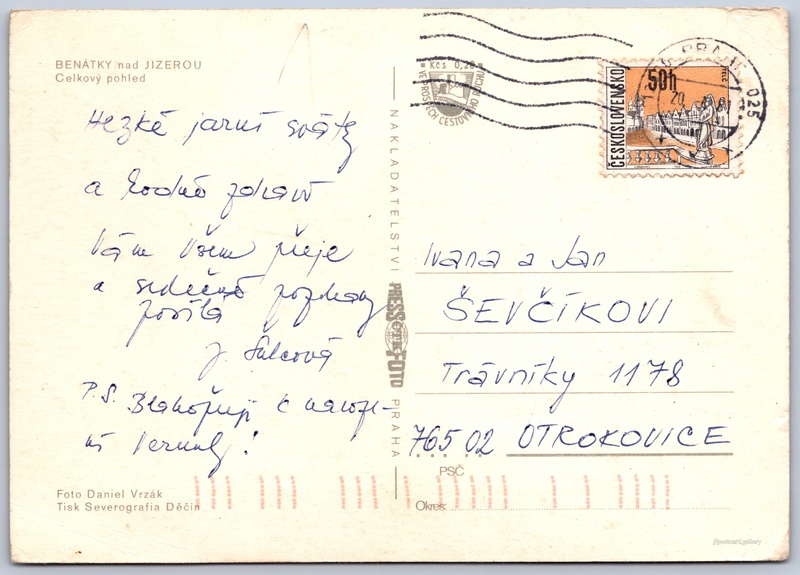 BENÁTKY nad JIZEROU
Celkový pohled
Hezké jarní svátky
a hodně zdraví
Vám všem přeje
a srdečné pozdravy
posílá
J. Šulcová
P.S. Blahopřeji k naroze-
ní Verunky!
Foto Daniel Vrzák
Tisk Severografia Děčín
NAKLADATELSTVÍ
PRESSFOTO
ČTK
PRAHA
Kčs 0,20
VE PROSPĚCH CESTOVNÍHO RUCHU
ČESKOSLOVENSKO
50h
TELČ
PRAHA
025
20
Ivana a Jan
ŠEVČÍKOVI
Trávníky 1178
765 02 OTROKOVICE
PSČ
Okres:
postcard.gallery